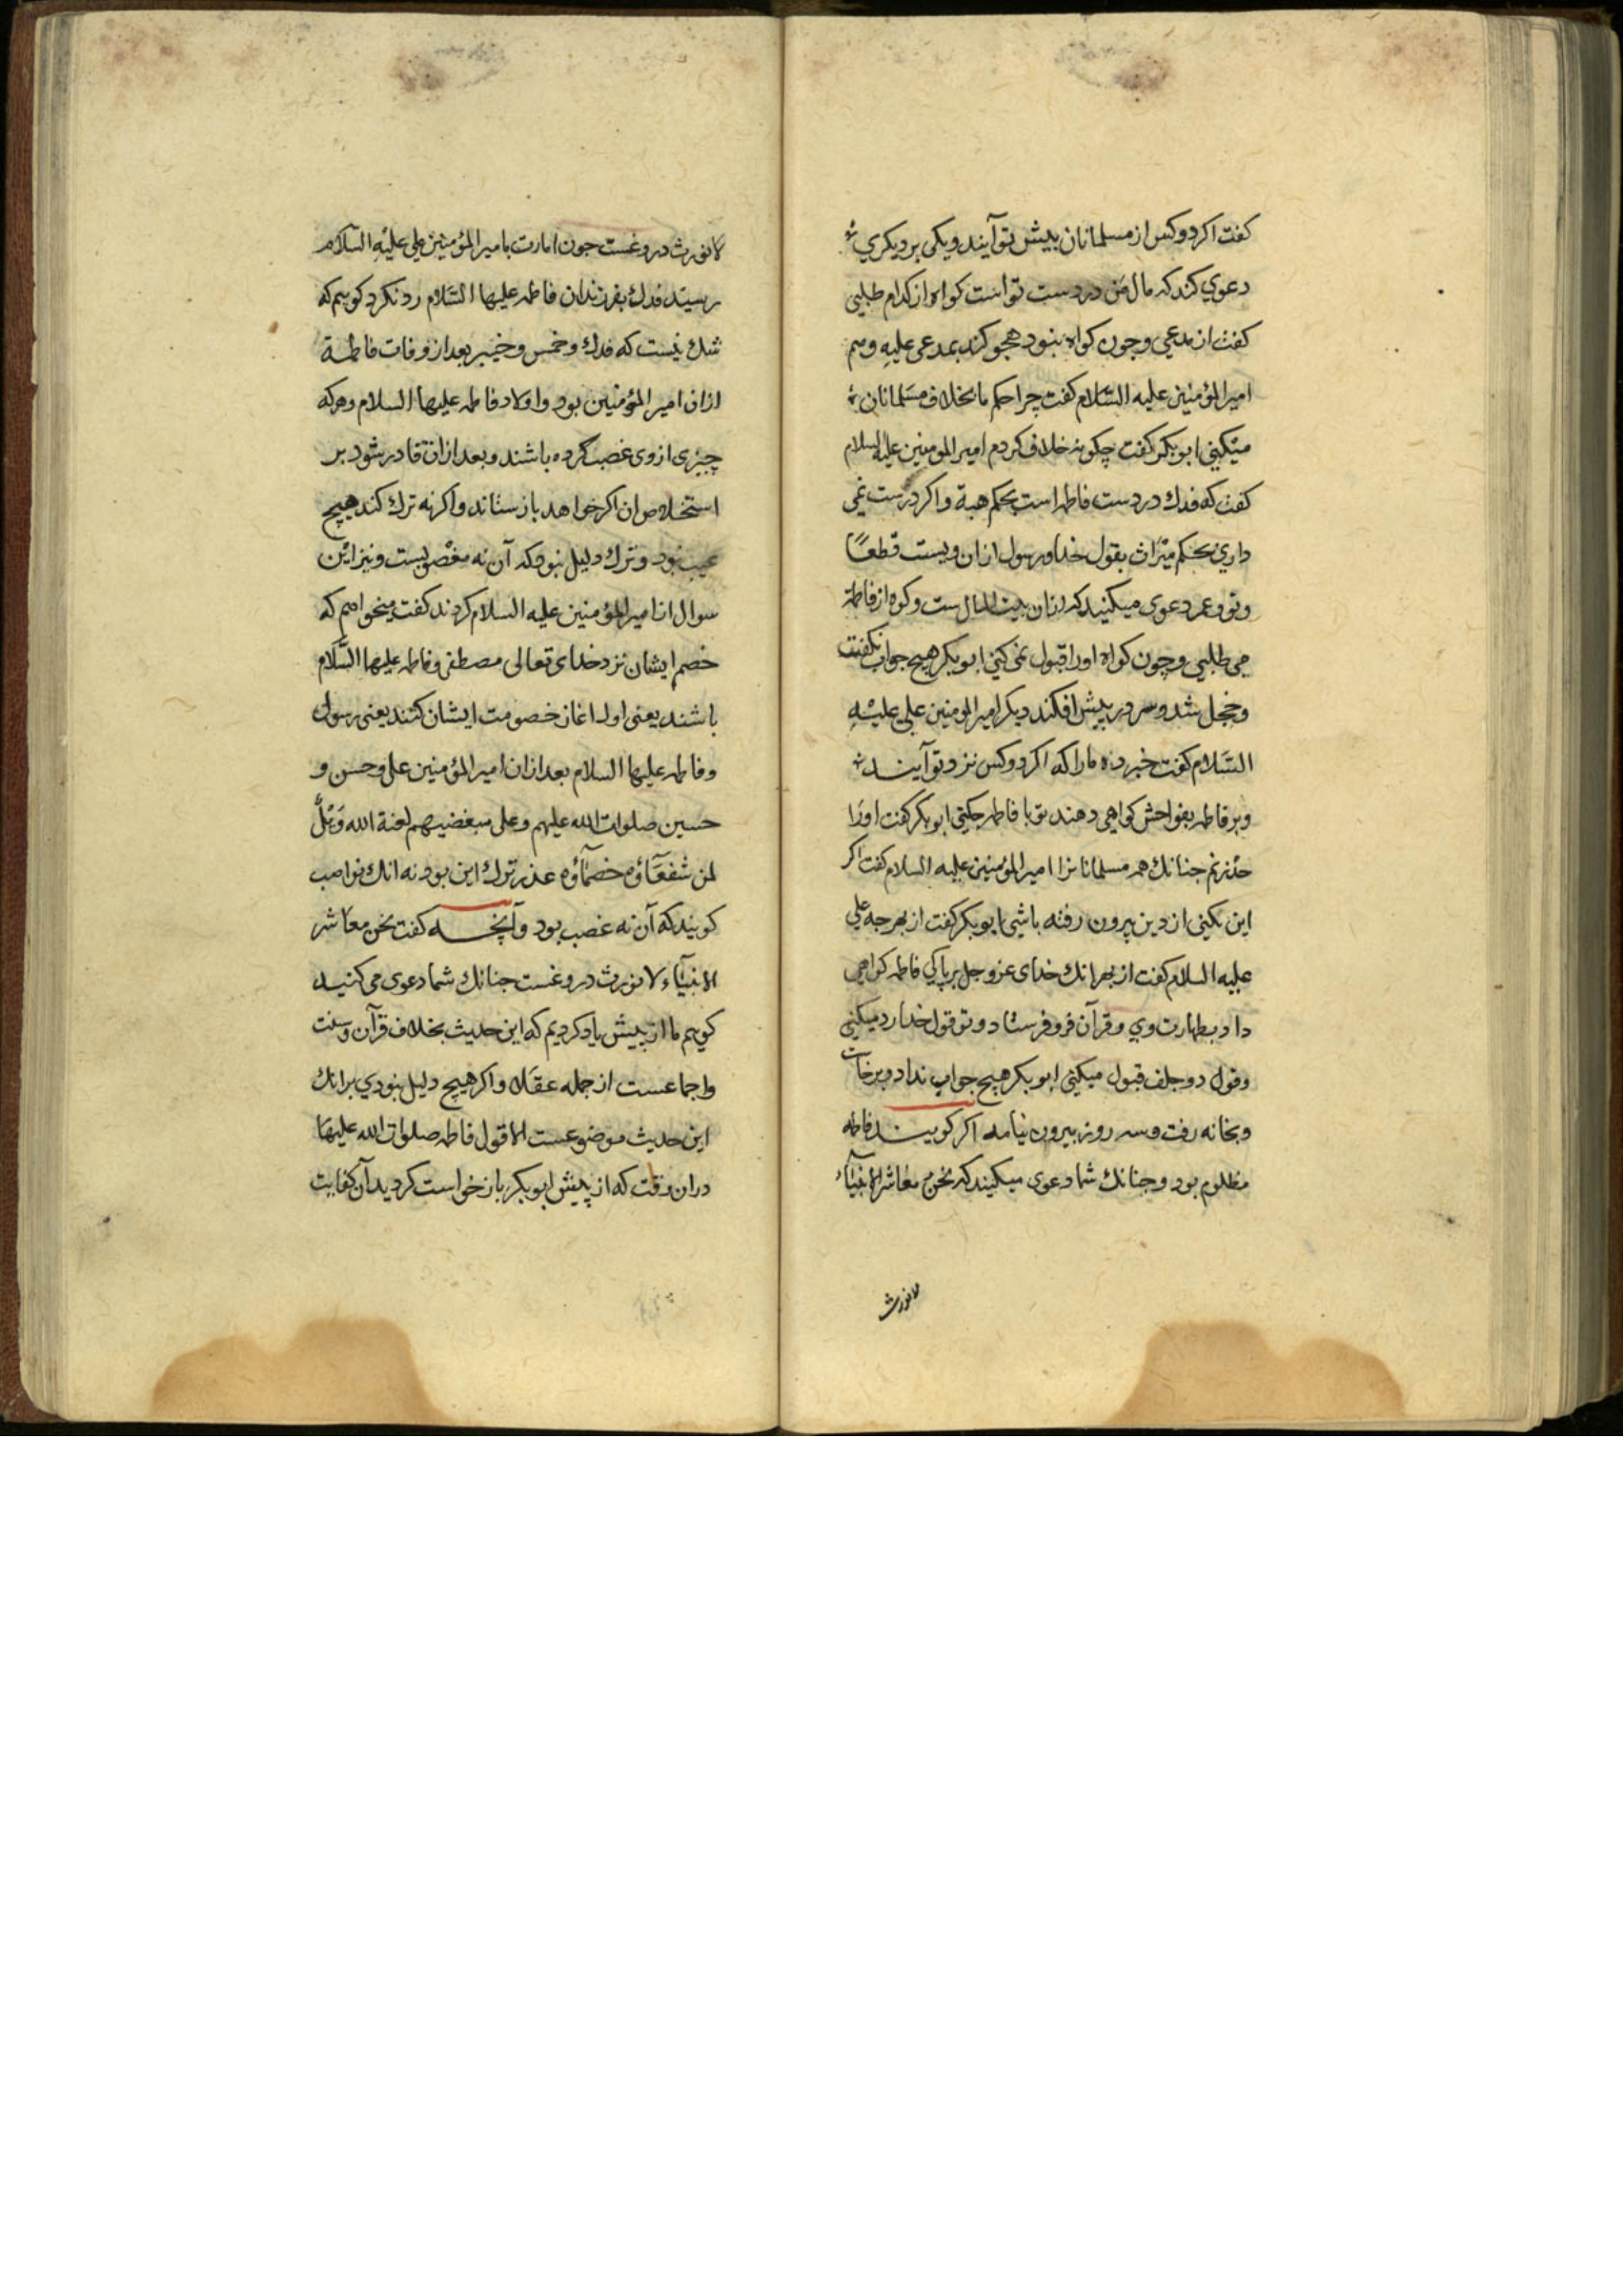 کفت اکر دو کس از مسلمانان پیش تو آیند و یکی بر دیکری
دعوی کند که مال من در دست تو است کواه از کدام طلبی
کفت از مدعی و چون کواه نبود کند بمدعی علیه
امیر المؤمنین علیه السّلام کفت چرا حکم ما بخلاف مسلمانان
میکنی ابو بکر کفت چکونه خلاف کردم امیر المؤمنین علیه السلام
کفت که فدك در دست فاطمه است بحکم هبة و اکر درست نمی
داری بحکم میراث بقول خدا و رسول ازان ویست قطعًا
و تو و عمر دعوی میکنید که ازان بیت المال ست و کوه از فاطمه
می طلبی و چون کواه اورا قبول نمی کنی ابو بکر هیچ جواب نکفت
و خجل شد و سر در پیش افکند دیکر امیر المومنین علی علیه
السّلام کفت خبر ده مارا که اکر دو کس نزد تو آیند
و بر فاطمه بفواحش کواهی دهند تو با فاطمه چکنی ابو بکر کفت اورا
حد زنم جنانك همه مسلمانانرا امیر المؤمنین علیه السلام کفت اکر
این بکنی از دین بیرون رفته باشی ابو بکر کفت از بهر جه علی
علیه السلام کفت از بهر انك خدای عز و جل بر پاکی فاطمه کواهی
داد بطهارت وی و قرآن فرو فرستاد و تو قول خدا رد میکنی
و قول دو جلف قبول میکنی ابو بکر هیچ جواب نداد و برخاست
و بخانه رفت و سه روز بیرون نیامد اکر کویند فاطمه
مظلوم بود و جنانك شما دعوی میکنید که نحن معاشر الانبیآء
لانورث
لانورث دروغست جون امارت بامیر المؤمنین علی علیه السّلام
رسید فدك بفرزندان فاطمه علیها السّلام رد نکرد کوییم که
شك نیست که فدك و خمس و خیبر بعد از وفات فاطمة
ازان امیر المؤمنین بود و اولاد فاطمه علیها السلام و هر که
چیزی از وی غصب کرده باشند و بعد ازان قادر شود بر
استخلاص ان اکر خواهد باز ستاند و اکر نه ترك کند هیچ
عیب نبود و ترك دلیل نبود که آن نه مغصوبست و نیز این
سوال از امیر المؤمنین علیه السلام کردند کفت میخواهم که
خصم ایشان نزد خدای تعالی مصطفی و فاطمه علیها السّلام
باشند یعنی اول اغاز خصومت ایشان کنند یعنی رسول
و فاطمه علیها السلام بعد ازان امیر المؤمنین علی و حسن و
حسین صلوات الله علیهم و علی مبغضیهم لعنة الله وَیْلٌ
لمن شفعَآؤه خصمآؤه عذر ترك این بود نه انك نواصب
کویند که آن نه غصب بود و آنچه کفت نحن معاشر
الانبیآء لا نورث دروغست جنانك شما دعوی می کنید
کوییم ما از پیش یاد کردیم که این حدیث بخلاف قرآن و سنت
و اجماعست از جمله عقلا و اکر هیچ دلیل نبودی برانك
این حدیث موضوعست الا قول فاطمه صلوات الله علیها
دران وقت که از پیش ابو بکر باز خواست کردید آن کفایت